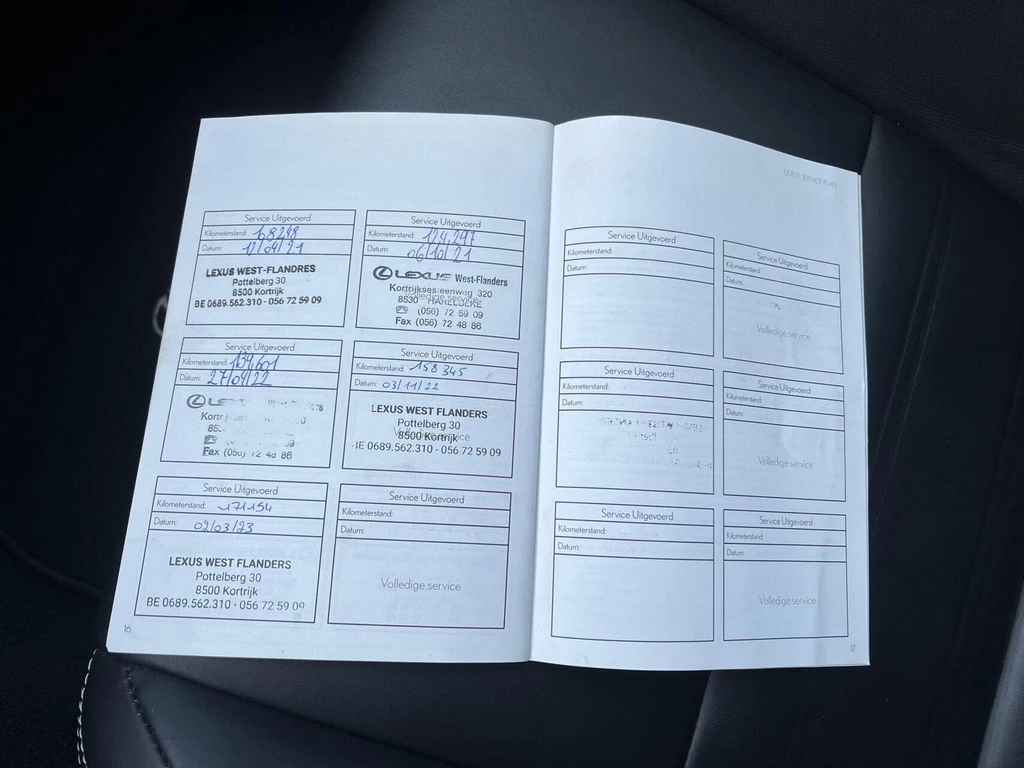 Service Uitgevoerd
Kilometerstand: 68248
Datum: 12/04/21
LEXUS WEST-FLANDRES
Pottelberg 30
8500 Kortrijk
BE 0689.562.310 - 056 72 59 09
Service Uitgevoerd
Kilometerstand: 124.297
Datum: 06/10/21
LEXUS West-Flanders
Kortrijksesteenweg 320
Volledige service
8530 HARELBEKE
(056) 72 59 09
Fax (056) 72 48 86
Service Uitgevoerd
Kilometerstand: 134.601
Datum: 27/04/22
Fax (056) 72 48 86
Service Uitgevoerd
Kilometerstand: 158 345
Datum: 03/11/22
LEXUS WEST FLANDERS
Pottelberg 30
Volledige service
8500 Kortrijk
BE 0689.562.310 - 056 72 59 09
Service Uitgevoerd
Kilometerstand: 171154
Datum: 09/03/23
LEXUS WEST FLANDERS
Pottelberg 30
8500 Kortrijk
BE 0689.562.310 - 056 72 59 09
Service Uitgevoerd
Kilometerstand:
Datum:
Volledige service
16
LEXUS SERVICE PLAN
Service Uitgevoerd
Kilometerstand:
Datum:
Service Uitgevoerd
Kilometerstand:
Datum:
Volledige service
Service Uitgevoerd
Kilometerstand:
Datum:
Service Uitgevoerd
Kilometerstand:
Datum:
Volledige service
Service Uitgevoerd
Kilometerstand:
Datum:
Service Uitgevoerd
Kilometerstand:
Datum:
Volledige service
17